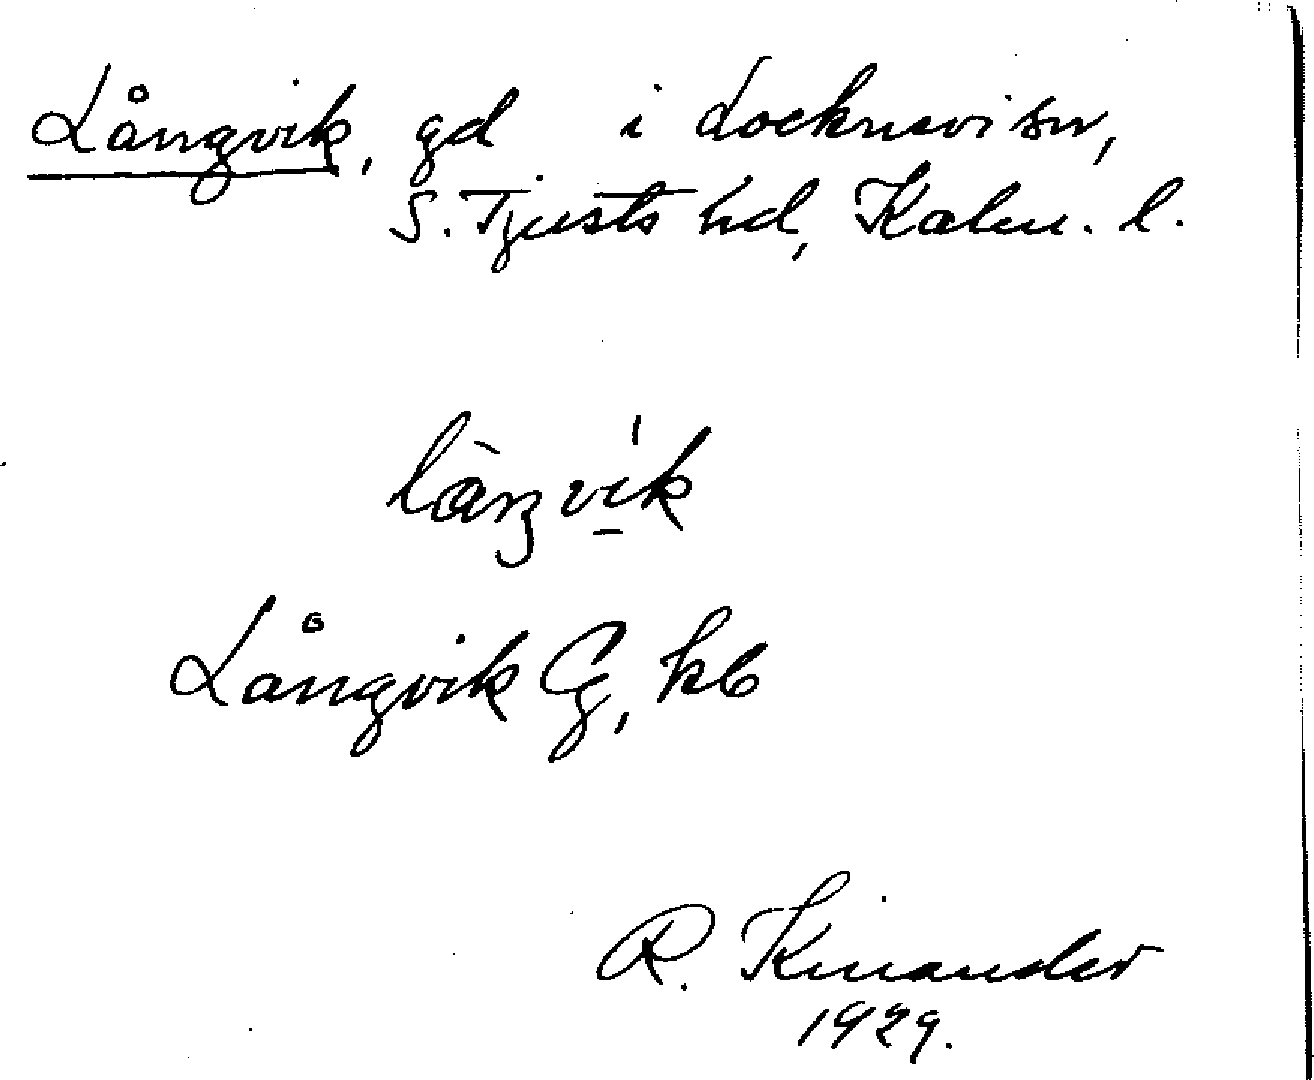 Långvik, gd i Locknevi sn,
S. Tjusts hd, Kalm. l.
làŋvík
Långvik Cg, kb
R. Kinander
1929.